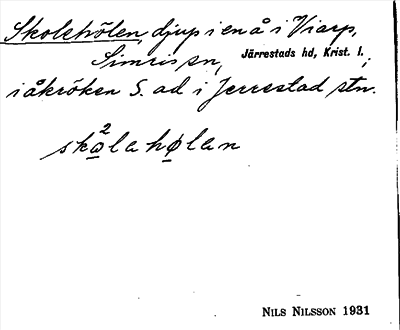 Skolehölen, djup i en å i Viarp,
Simris sn, Järrestads hd, Krist. l.;
i åkröken S. ad i Jerrestad stn.
2
skolahølan
NILS NILSSON 1931